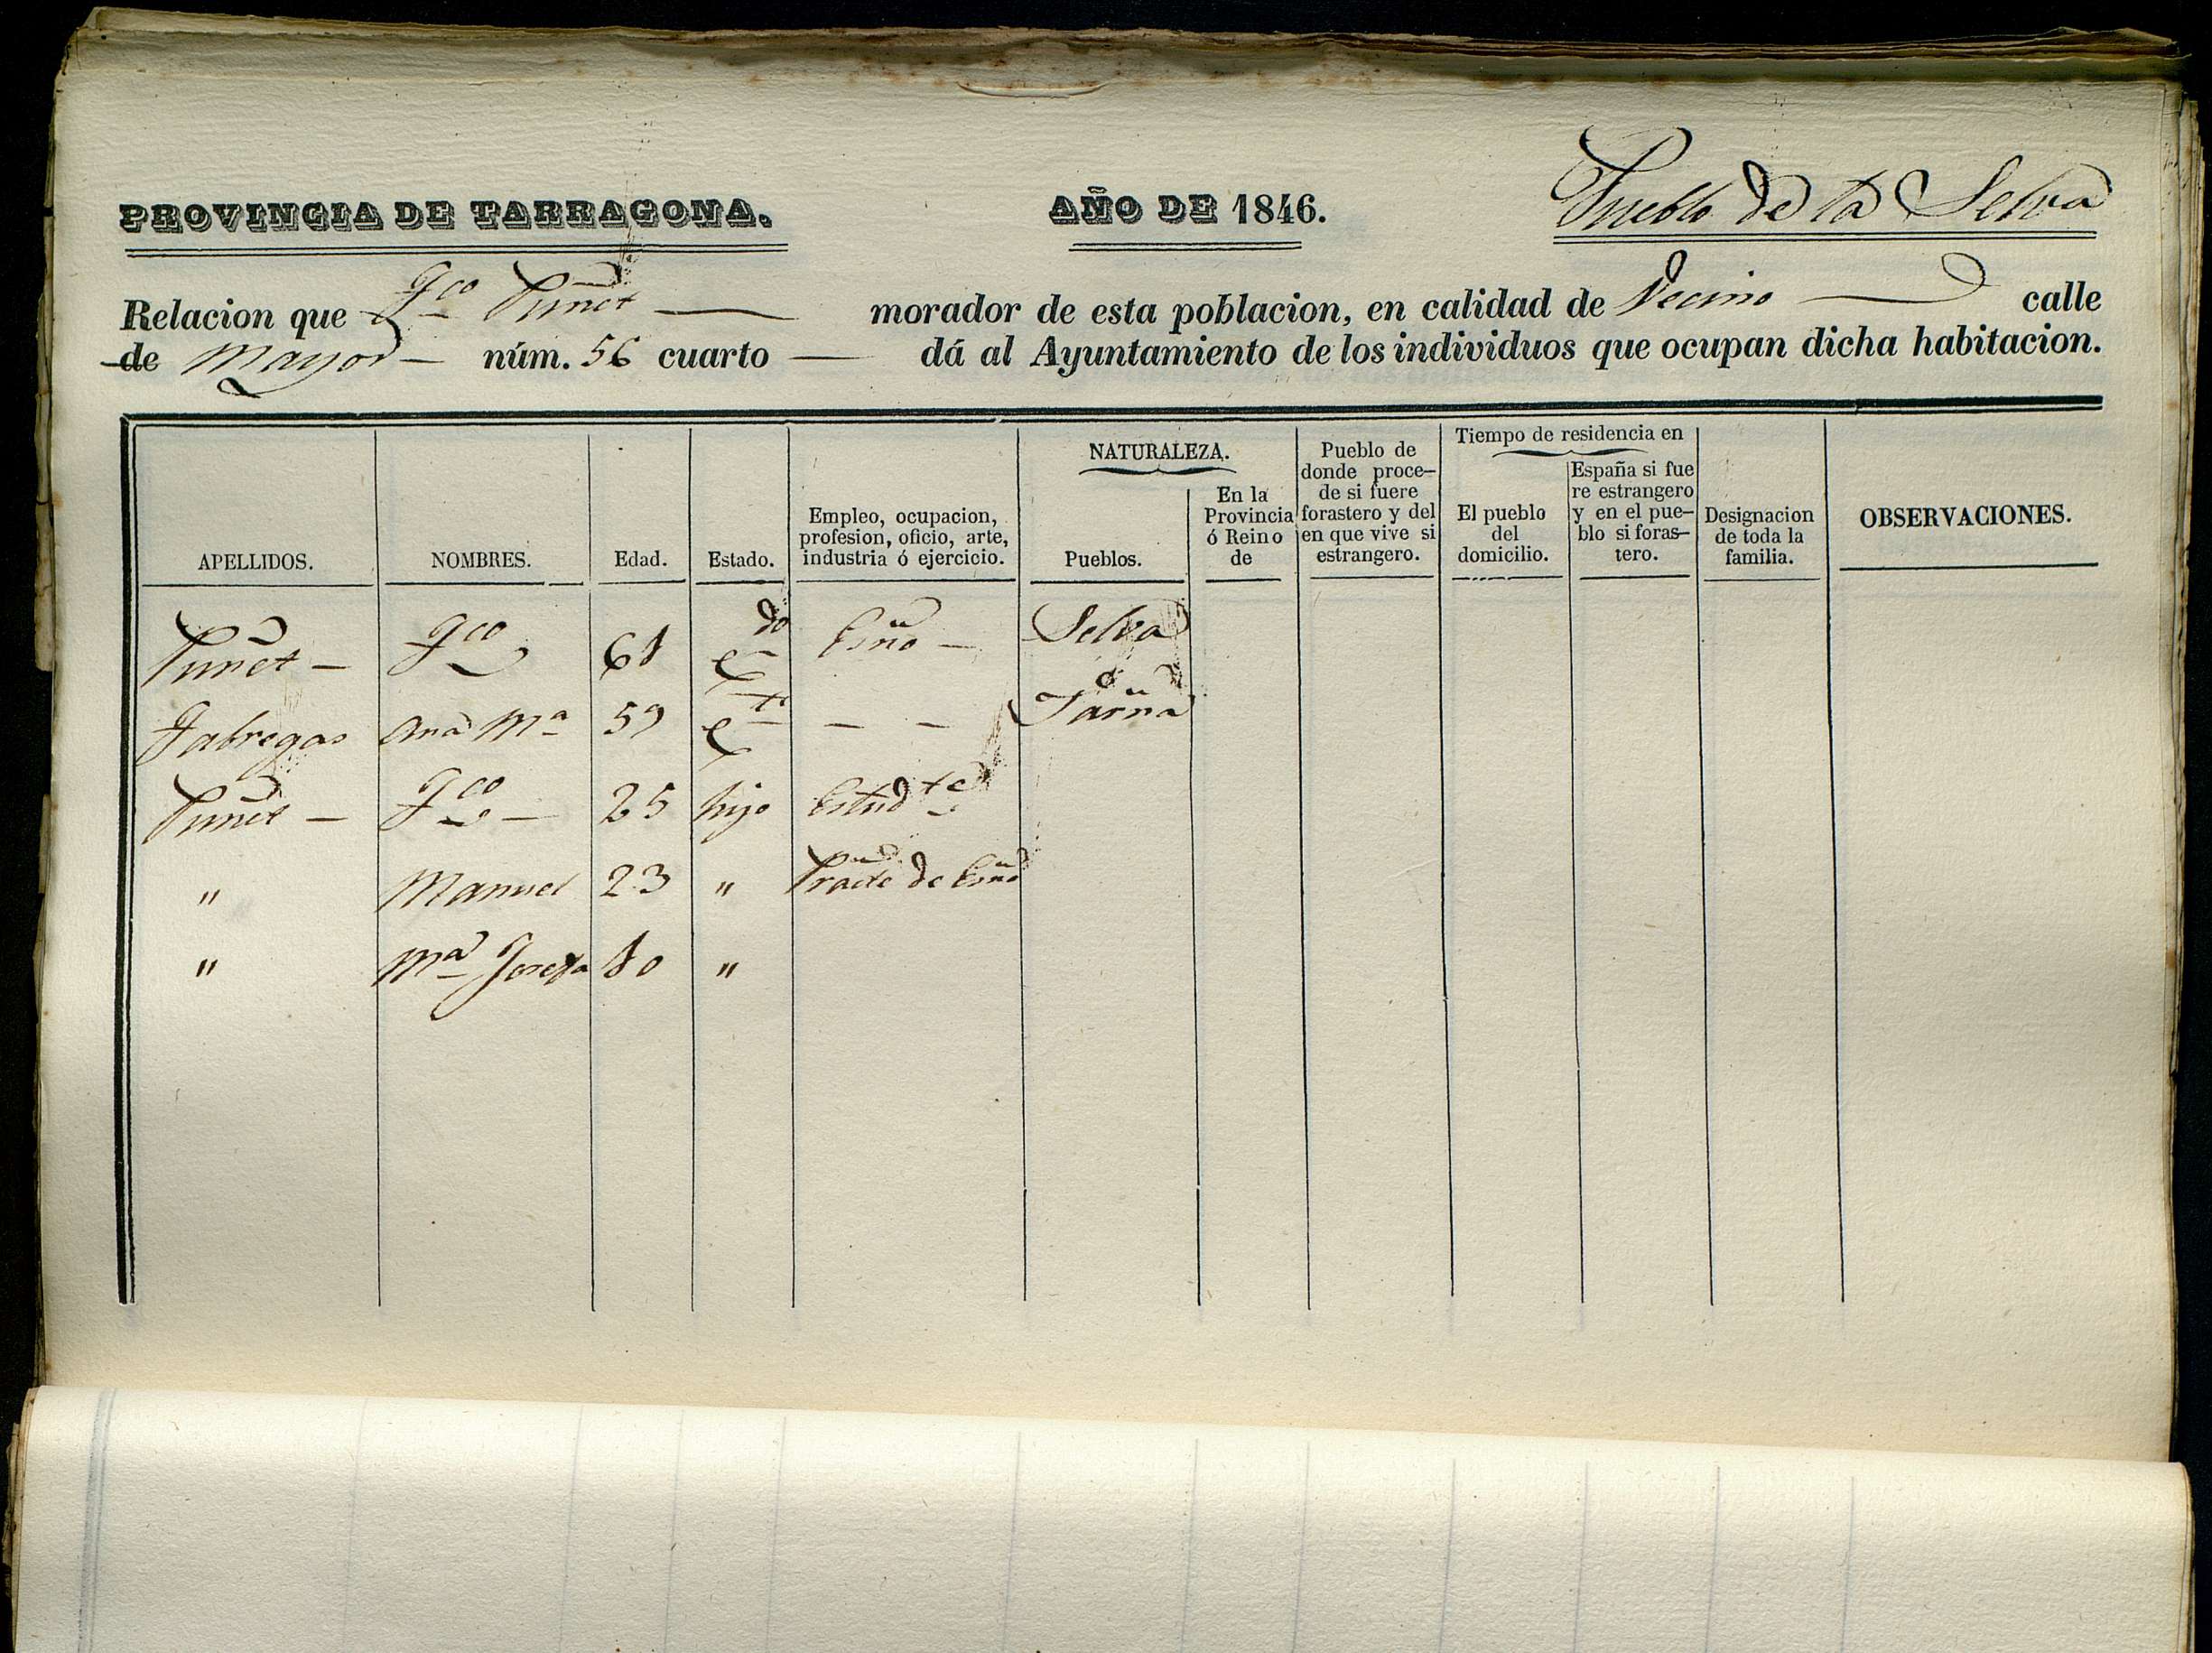 PROVINCIA DE TARRAGONA. AÑO DE 1846. Pueblo de la Selva
Relacion que Fco Puñet — morador de esta poblacion, en calidad de Vecino — calle
de Mayor — núm. 56 cuarto — dá al Ayuntamiento de los individuos que ocupan dicha habitacion.
APELLIDOS.
NOMBRES.
Edad.
Estado.
Empleo, ocupacion,
profesion, oficio, arte,
industria ó ejercicio.
NATURALEZA.
Pueblos.
En la
Provincia
ó Reino
de
Pueblo de
donde proce-
de si fuere
forastero y del
en que vive si
estrangero.
Tiempo de residencia en
El pueblo
del
domicilio.
España si fue
re estrangero
y en el pue-
blo si foras-
tero.
Designacion
de toda la
familia.
OBSERVACIONES.
Puñet — Fco 61 Cdo Esño — Selva
Fabregas Ana Ma 59 Cta — — Tarña
Puñet — Fco — 25 hijo Estudte
" Manuel 23 " Practe de Esño
" Ma Josefa 10 "